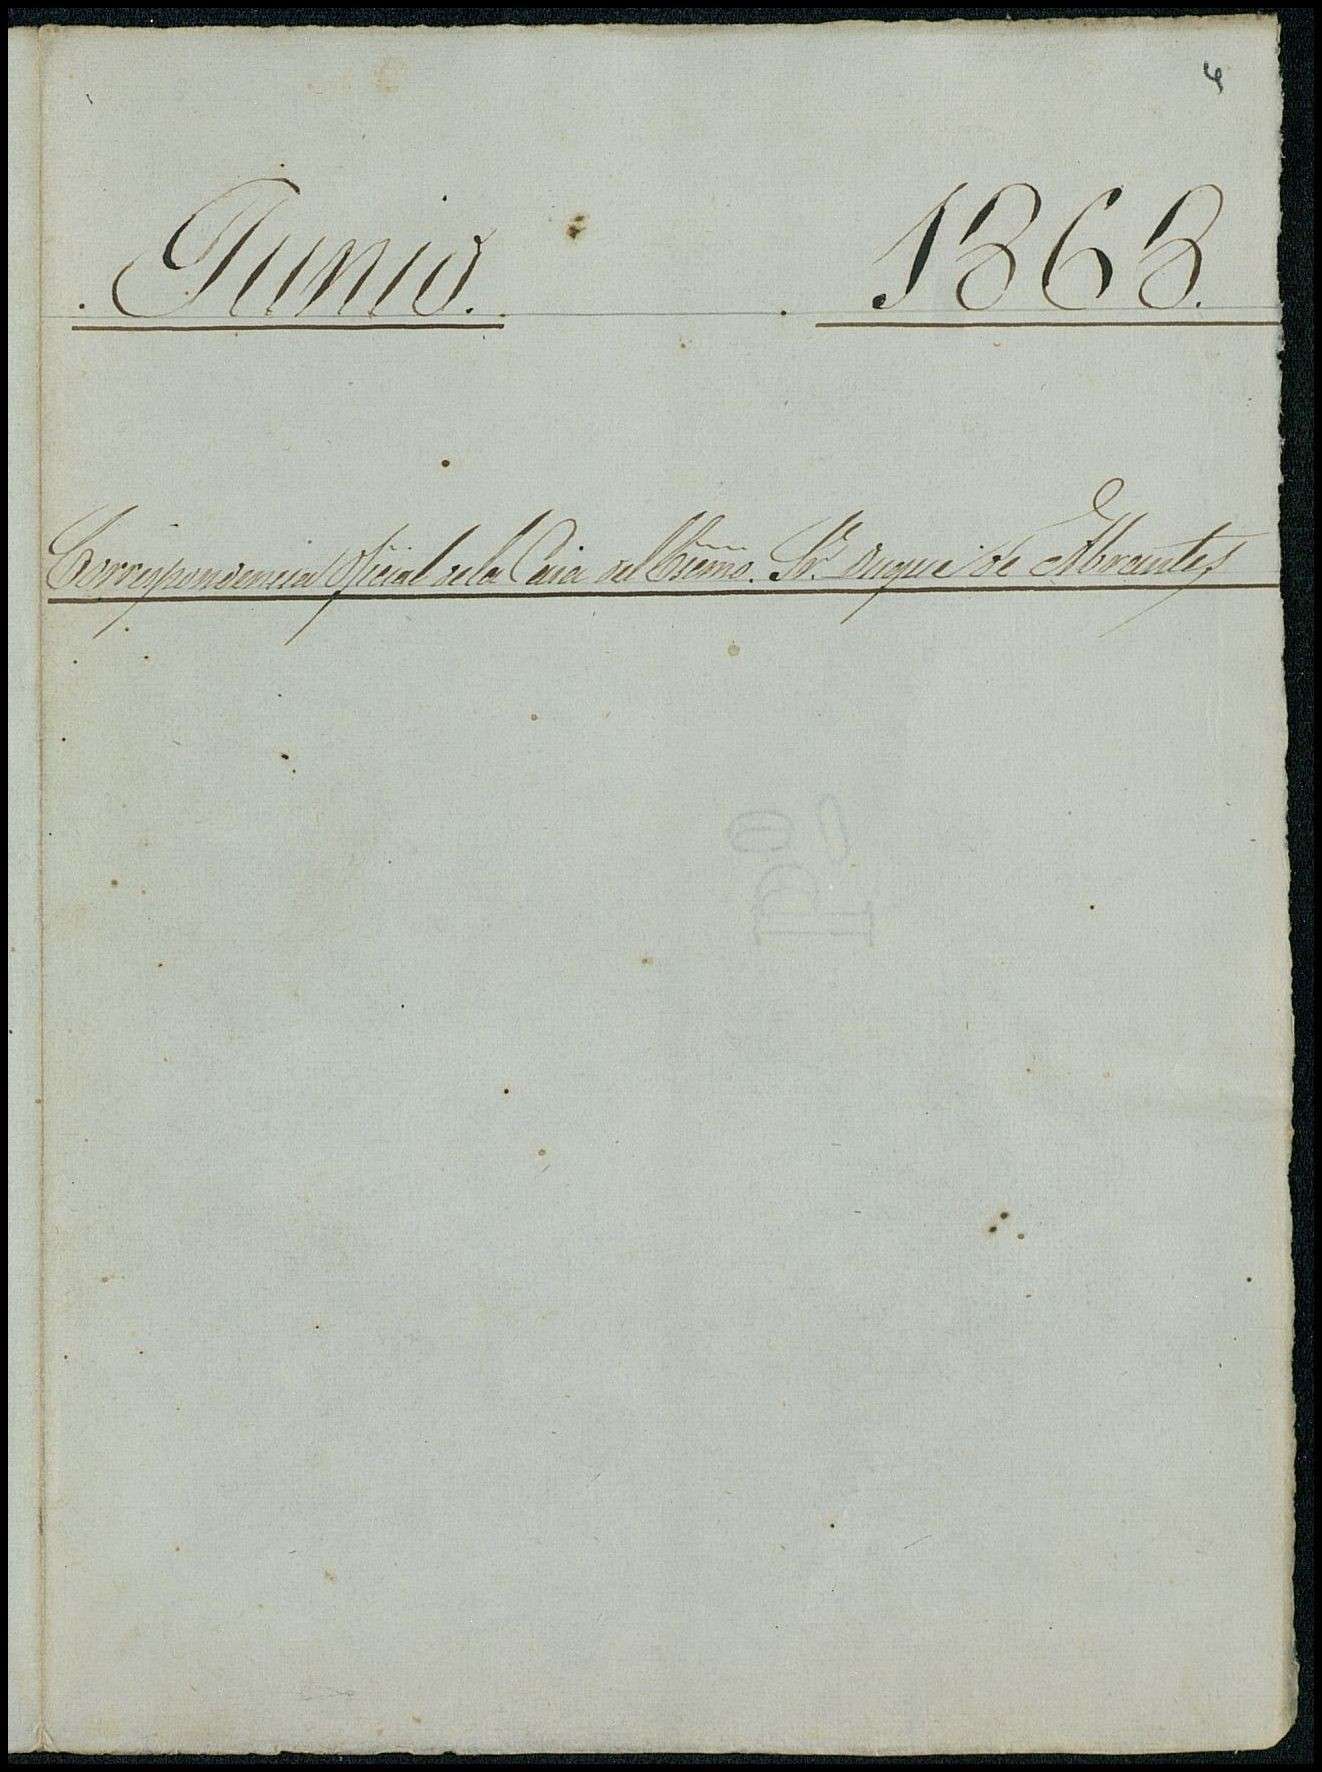 4
Junio. 1868.
Correspondencia Oficial de la Casa del Excmo. Sr. Duque de Abrantes